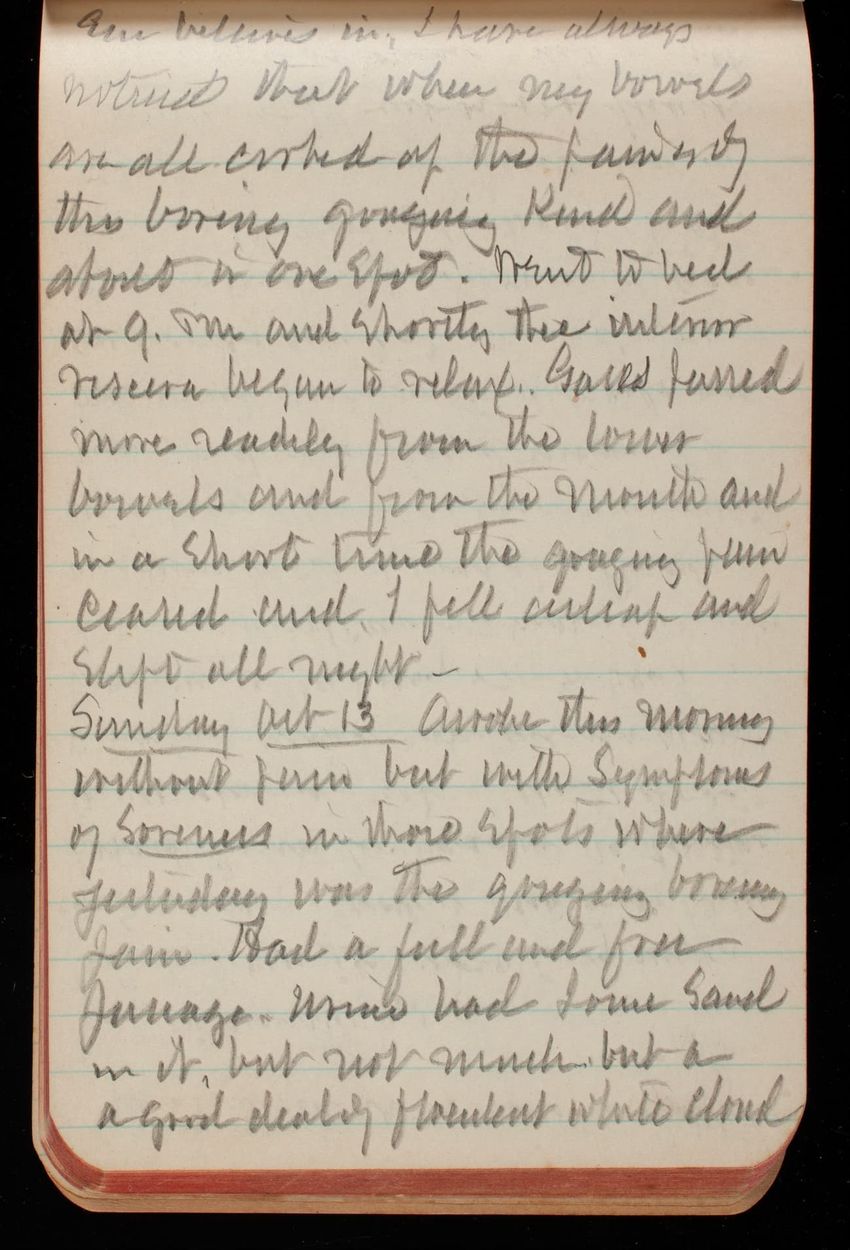 believes in, I have always
noticed that when my bowels
are all corked up the pain is of
this boring gouging Kind and
about in one Spot. Went to bed
at 9. and Shortly the interior
viscera began to relax. Gases passed
more readily from the lower
bowels and from the mouth and
in a Short time the gouging pain
Ceased and I fell asleep and
Slept all night -
Sunday Oct 13 Awoke this morning
without pain but with Symptoms
of Soreness in those Spots where
yesterday was the gouging boring
pain. Had a full and free
passage. Urine had Some Sand
in it, but not much but a
a good deal of flocculent white Cloud